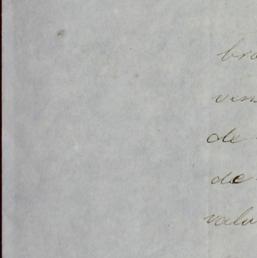 bra
vin
de
de
valu